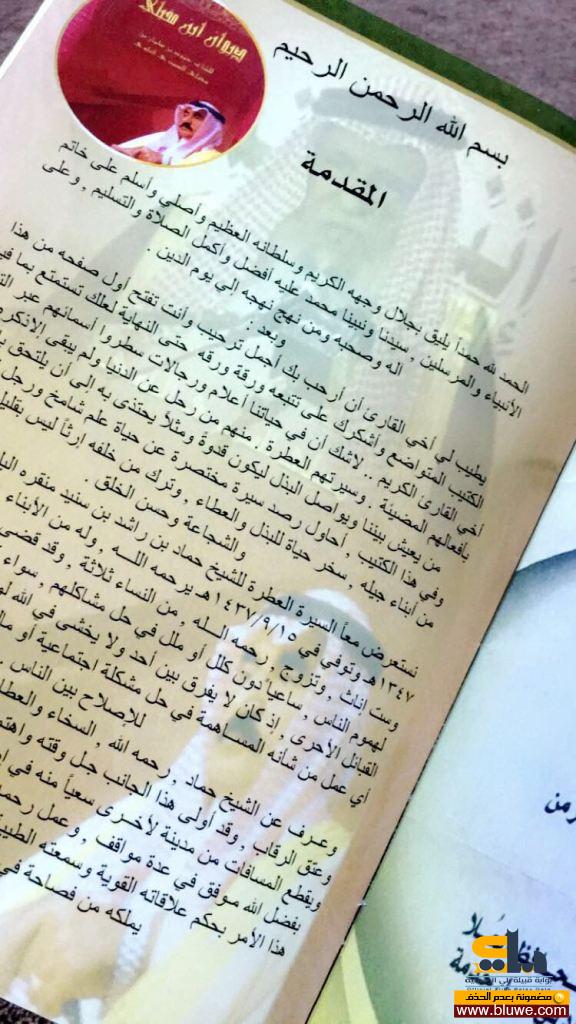 ديوان ابن مهيلي
بسم الله الرحمن الرحيم
المقدمة
الحمد لله حمداً يليق بجلال وجهه الكريم وسلطانه العظيم وأصلي وأسلم على خاتم
الأنبياء والمرسلين , سيدنا ونبينا محمد عليه أفضل وأكمل الصلاة والتسليم , وعلى
اله وصحبه ومن نهج نهجه إلى يوم الدين .
وبعد :
يطيب لي أخي القارئ أن أرحب بك أجمل ترحيب وأنت تفتح أول صفحه من هذا
الكتيب المتواضع وأشكرك على تتبعه ورقة ورقه حتى النهاية لعلك تستمتع بما
أخي القارئ الكريم .. لاشك أن في حياتنا أعلام ورجالات سطروا أسمائهم عبر
بأفعالهم المضيئة . وسيرتهم العطرة , منهم من رحل عن الدنيا ولم يبقى إلا
من يعيش بيننا ويواصل البذل ليكون قدوة ومثلاً يحتذى به إلى أن يلتحق
وفي هذا الكتيب , أحاول رصد سيرة مختصرة عن حياة علم شامخ ورجل
من أبناء جيله , سخر حياة للبذل والعطاء , وترك من خلفه إرثاً ليس بقليل
والشجاعة وحسن الخلق .
نستعرض معاً السيرة العطرة للشيخ حماد بن راشد بن سنيد منقره
١٣٤٧هـ وتوفي في ١٤٣٧/٩/١٥هـ يرحمه الله , وله من الأبناء
وست إناث , وتزوج , رحمه الله , من النساء ثلاثة , وقد قضى
لهموم الناس , ساعياً دون كلل أو ملل في حل مشاكلهم , سواء
القبائل الأخرى , إذ كان لا يفرق بين أحد ولا يخشى في الله
أي عمل من شأنه المساهمة في حل مشكلة اجتماعية أو
للإصلاح بين الناس .
وعرف عن الشيخ حماد , رحمه الله , السخاء
وعتق الرقاب , وقد أولى هذا الجانب جل وقته
ويقطع المسافات من مدينة لأخرى سعياً منه في
بفضل الله موفق في عدة مواقف , وعمل
هذا الأمر بحكم علاقاته القوية وسمعته
يملكه من فصاحة في
بوابة قبيلة بلي الرسمية
مضمونة بعدم الحذف
www.bluwe.com